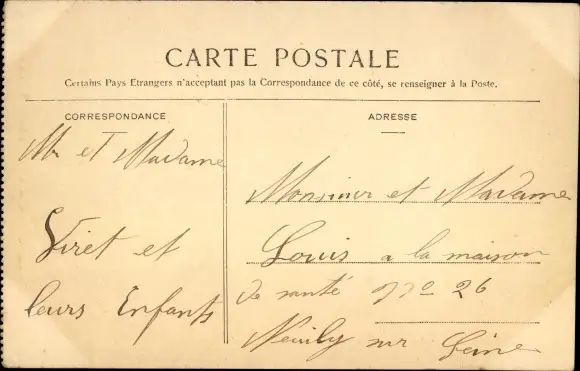 CARTE POSTALE
Certains Pays Etrangers n'acceptant pas la Correspondance de ce côté, se renseigner à la Poste.
CORRESPONDANCE
Mr et Madame
Viret et
leurs Enfants
ADRESSE
Monsieur et Madame
Louis a la maison
de santé no 26
Neuily sur Seine